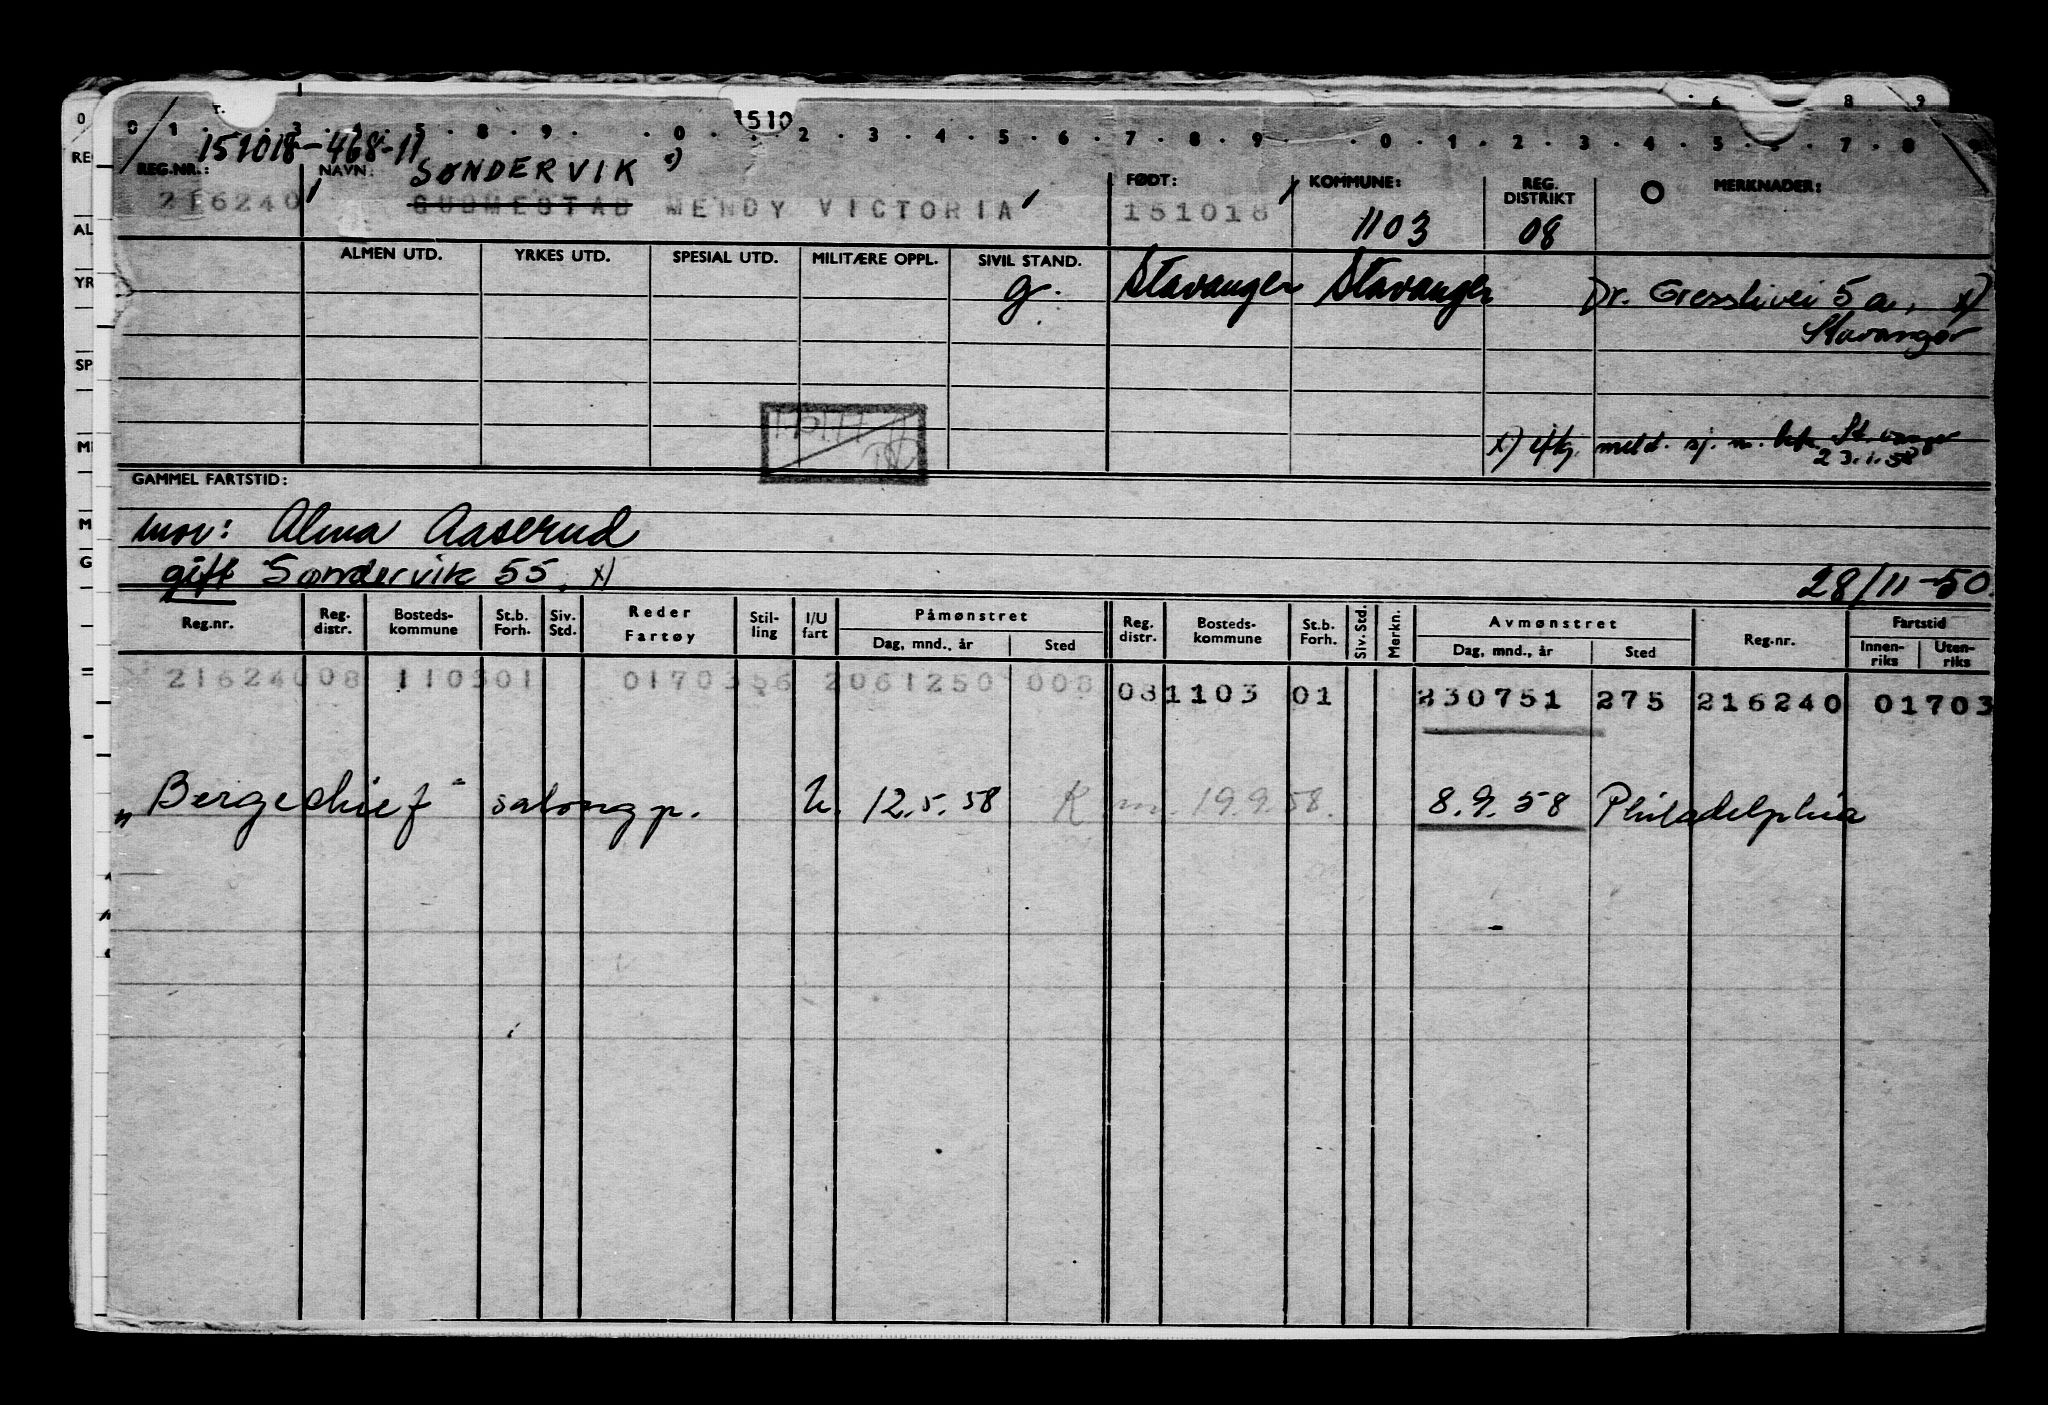 0 1 . 3 4 5 . 8 . 9 . . 0 . 1510 2 . 3 . 4 . 5 . 6 . 7 . 8 . 9 . . 0 . 1 . 2 . 3 . 4 . 5 . 6 . 7 . 8
151018-468-11
REG.NR.: NAVN: SØNDERVIK x) FØDT: KOMMUNE: REG. DISTRIKT MERKNADER:
216240 GUDMESTAD WENDY VICTORIA 151018 1103 08
ALMEN UTD. YRKES UTD. SPESIAL UTD. MILITÆRE OPPL. SIVIL STAND.
g. Stavanger Stavanger Dr. 5 a, x)
Stavanger
x) meld. sj. m. Stavanger
23.1.58
GAMMEL FARTSTID:
mor: Alma Aaserud
gift Søndervik 55. x) 28/11-50.
Reg.nr. Reg. distr. Bosteds-kommune St.b. Forh. Siv. Std. Reder Fartøy Stil-ling I/U fart Påmønstret Dag, mnd., år Sted Reg. distr. Bosteds-kommune St.b. Forh. Siv. Std. Merkn. Avmønstret Dag, mnd., år Sted Reg.nr. Fartstid Innen-riks Uten-riks
216240 08 1103 01 01703 56 2 061250 008 08 1103 01 230751 275 216240 01703
"Bergechief" salongp. U. 12.5.58 K. m. 19.9.58. 8.9.58 Philadelphia